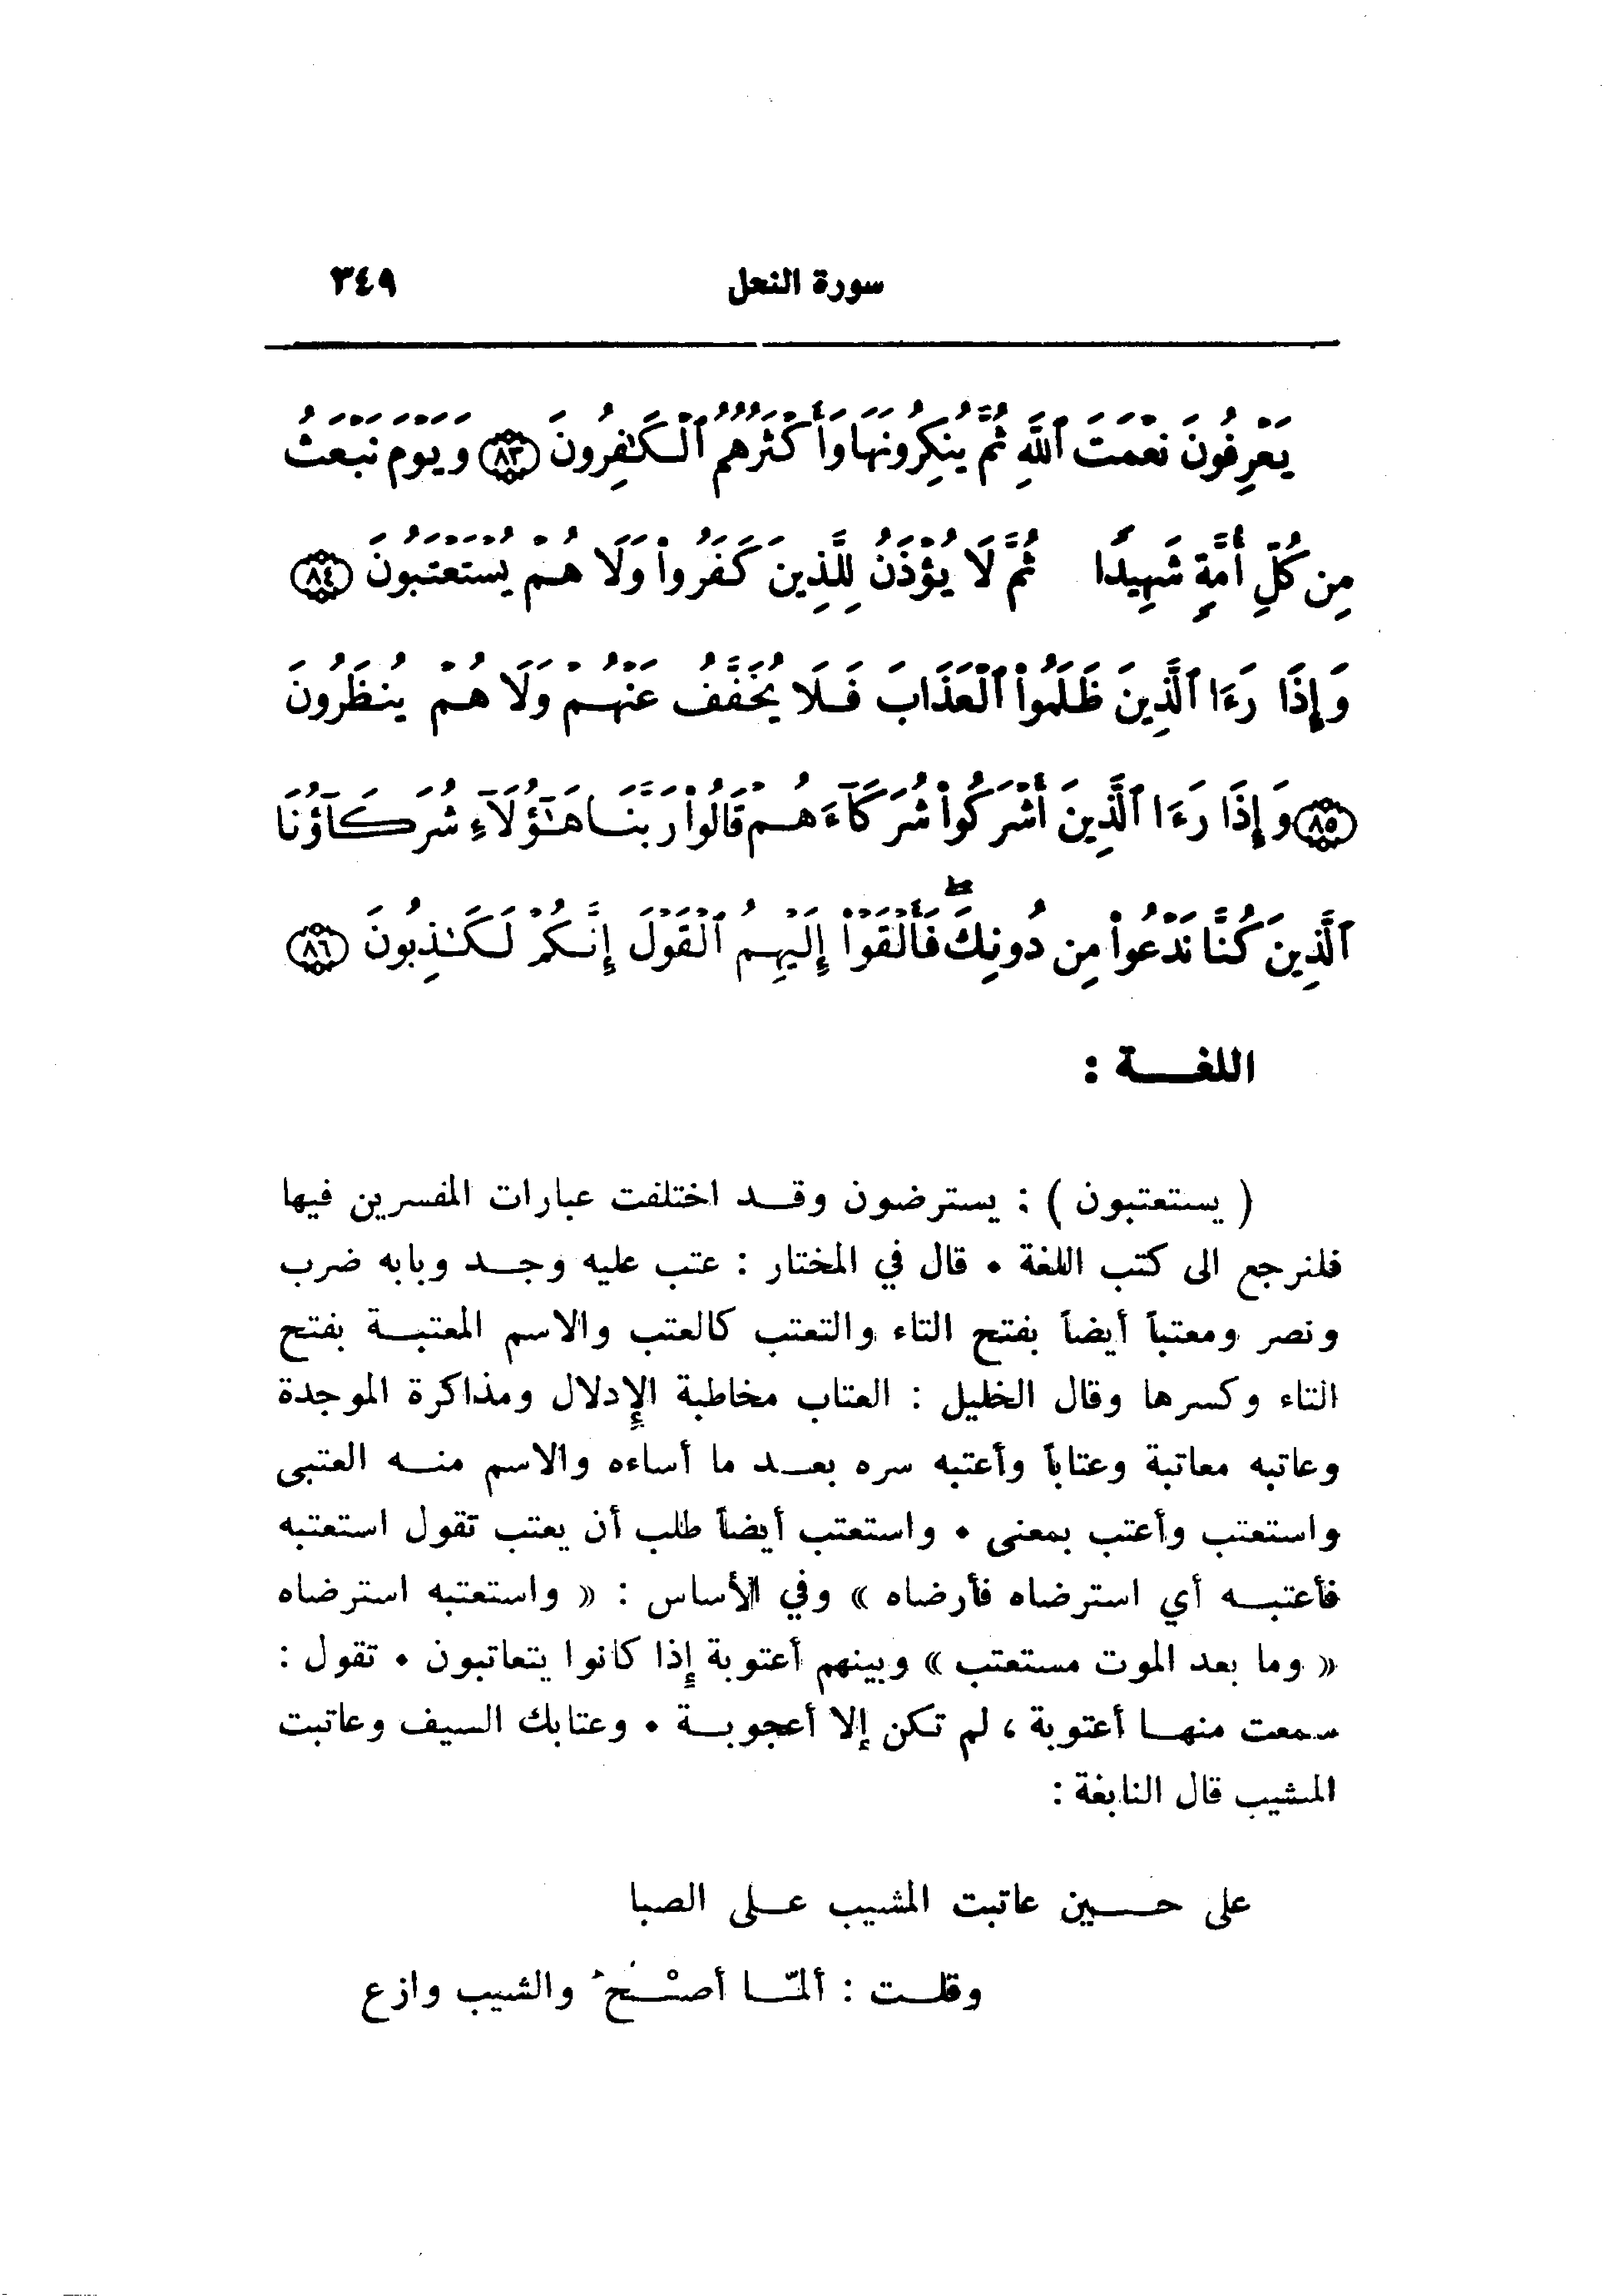 سورة النحل ٣٤٩
يَعْرِفُونَ نِعْمَتَ ٱللَّهِ ثُمَّ يُنكِرُونَهَا وَأَكْثَرُهُمُ ٱلْكَـٰفِرُونَ ﴿٨٣﴾ وَيَوْمَ نَبْعَثُ
مِن كُلِّ أُمَّةٍ شَهِيدًا ثُمَّ لَا يُؤْذَنُ لِلَّذِينَ كَفَرُوا۟ وَلَا هُمْ يُسْتَعْتَبُونَ ﴿٨٤﴾
وَإِذَا رَءَا ٱلَّذِينَ ظَلَمُوا۟ ٱلْعَذَابَ فَلَا يُخَفَّفُ عَنْهُمْ وَلَا هُمْ يُنظَرُونَ
﴿٨٥﴾ وَإِذَا رَءَا ٱلَّذِينَ أَشْرَكُوا۟ شُرَكَآءَهُمْ قَالُوا۟ رَبَّنَا هَـٰٓؤُلَآءِ شُرَكَآؤُنَا
ٱلَّذِينَ كُنَّا نَدْعُوا۟ مِن دُونِكَ ۖ فَأَلْقَوْا۟ إِلَيْهِمُ ٱلْقَوْلَ إِنَّكُمْ لَكَـٰذِبُونَ ﴿٨٦﴾
اللغــة :
( يستعتبون ) : يسترضون وقد اختلفت عبارات المفسرين فيها
فلنرجع الى كتب اللغة • قال في المختار : عتب عليه وجد وبابه ضرب
ونصر ومعتباً أيضاً بفتح التاء والتعتب كالعتب والاسم المعتبة بفتح
التاء وكسرها وقال الخليل : العتاب مخاطبة الإدلال ومذاكرة الموجدة
وعاتبه معاتبة وعتاباً وأعتبه سره بعد ما أساءه والاسم منه العتبى
واستعتب وأعتب بمعنى • واستعتب أيضاً طلب أن يعتب تقول استعتبه
فأعتبه أي استرضاه فأرضاه » وفي الأساس : « واستعتبه استرضاه
« وما بعد الموت مستعتب » وبينهم أعتوبة إذا كانوا يتعاتبون • تقول :
سمعت منها أعتوبة ، لم تكن إلا أعجوبة • وعتابك السيف وعاتبت
المشيب قال النابغة :
على حين عاتبت المشيب على الصبا
وقلت : ألمّا أصْحُ والشيب وازع